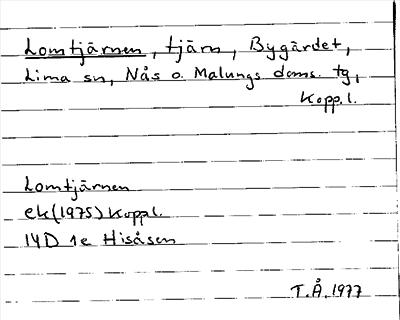 Lomtjärnen, tjärn, Bygärdet,
Lima sn, Nås o. Malungs doms. tg,
Kopp. l.
Lomtjärnen
ek(1975) Koppl.
14D 1e Hisåsen
T.Å. 1977